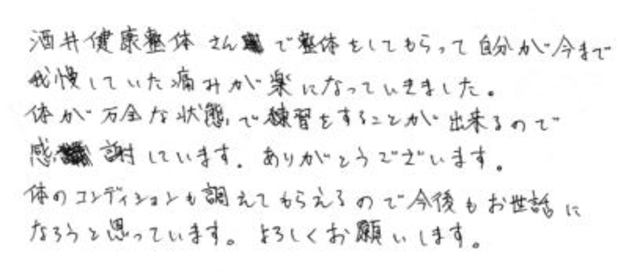 酒井健康整体さんで整体をしてもらって自分が今まで
我慢していた痛みが楽になっていきました。
体が万全な状態で練習をすることが出来るので
感謝しています。ありがとうございます。
体のコンディションも調えてもらえるので今後もお世話に
なろうと思っています。よろしくお願いします。